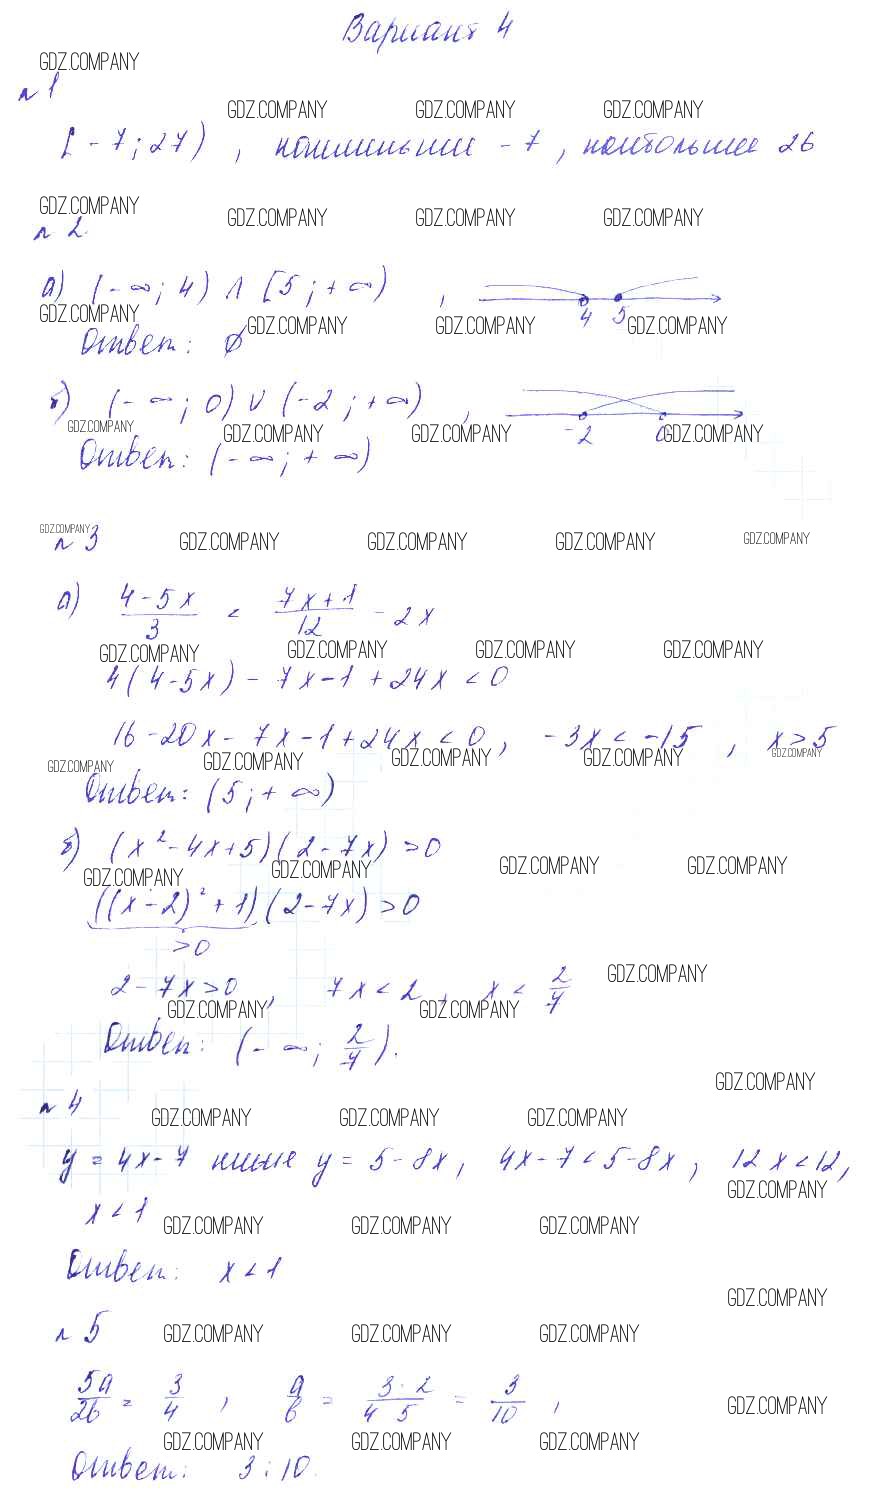 Вариант 4
GDZ.COMPANY
№ 1
GDZ.COMPANY GDZ.COMPANY GDZ.COMPANY
[-7; 27) , наименьшее -7 , наибольшее 26
GDZ.COMPANY
GDZ.COMPANY GDZ.COMPANY GDZ.COMPANY
№ 2.
а) (-∞; 4) ∩ [5; +∞) ,
GDZ.COMPANY 4 5
GDZ.COMPANY GDZ.COMPANY GDZ.COMPANY
Ответ: ∅
б) (-∞; 0) ∪ (-2; +∞) ,
GDZ.COMPANY GDZ.COMPANY GDZ.COMPANY -2 0 GDZ.COMPANY
Ответ: (-∞; +∞)
GDZ.COMPANY
№ 3 GDZ.COMPANY GDZ.COMPANY GDZ.COMPANY GDZ.COMPANY
а) (4-5x)/3 < (7x+1)/12 - 2x
GDZ.COMPANY GDZ.COMPANY GDZ.COMPANY GDZ.COMPANY
4(4-5x) - 7x-1 + 24x < 0
16-20x - 7x - 1 + 24x < 0 , -3x < -15 , x > 5
GDZ.COMPANY GDZ.COMPANY GDZ.COMPANY GDZ.COMPANY GDZ.COMPANY
Ответ: (5; +∞)
б) (x²-4x+5)(2-7x) > 0
GDZ.COMPANY GDZ.COMPANY GDZ.COMPANY GDZ.COMPANY
((x-2)²+1)(2-7x) > 0
>0
2-7x > 0 , 7x < 2 , x < 2/7
GDZ.COMPANY
GDZ.COMPANY GDZ.COMPANY
Ответ: (-∞; 2/7).
GDZ.COMPANY
№ 4
GDZ.COMPANY GDZ.COMPANY GDZ.COMPANY
y = 4x-7 ниже y = 5-8x, 4x-7 < 5-8x , 12x < 12,
GDZ.COMPANY
x < 1
GDZ.COMPANY GDZ.COMPANY GDZ.COMPANY
Ответ: x < 1
GDZ.COMPANY
№ 5 GDZ.COMPANY GDZ.COMPANY GDZ.COMPANY
5a/2b = 3/4 , a/b = (3·2)/(4 5) = 3/10 ,
GDZ.COMPANY
GDZ.COMPANY GDZ.COMPANY GDZ.COMPANY
Ответ: 3:10.